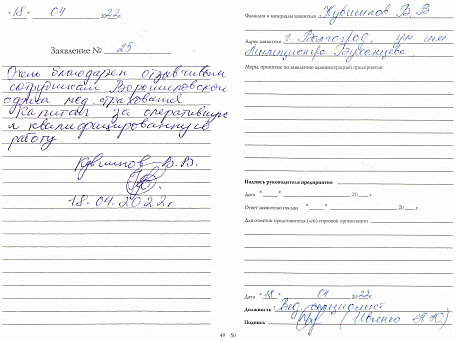 "18" 04 2022 г.
Заявление № 25
Очень благодарен отзывчивым
сотрудникам Ворошиловского
офиса мед. страхования
Капитал за оперативную
и квалифицированную
работу.
Кувшинов В.В.
18.04.2022г.
49
Фамилия и инициалы заявителя Кувшинов В В
Адрес заявителя г. Волгоград, ул им
Милиционера Буханцева
Меры, принятые по заявлению администрацией предприятия:
Подпись руководителя предприятия
Дата " " 20 г.
Ответ заявителю послан " " 20 г.
Для отметок представителя (-ей) торговой организации
Дата "18" 04 2022г.
Должность Вед. специалист
Подпись
50